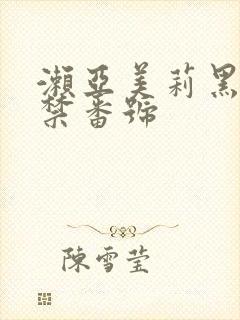 瀨亞美莉黑
禁番號
陳雪莹